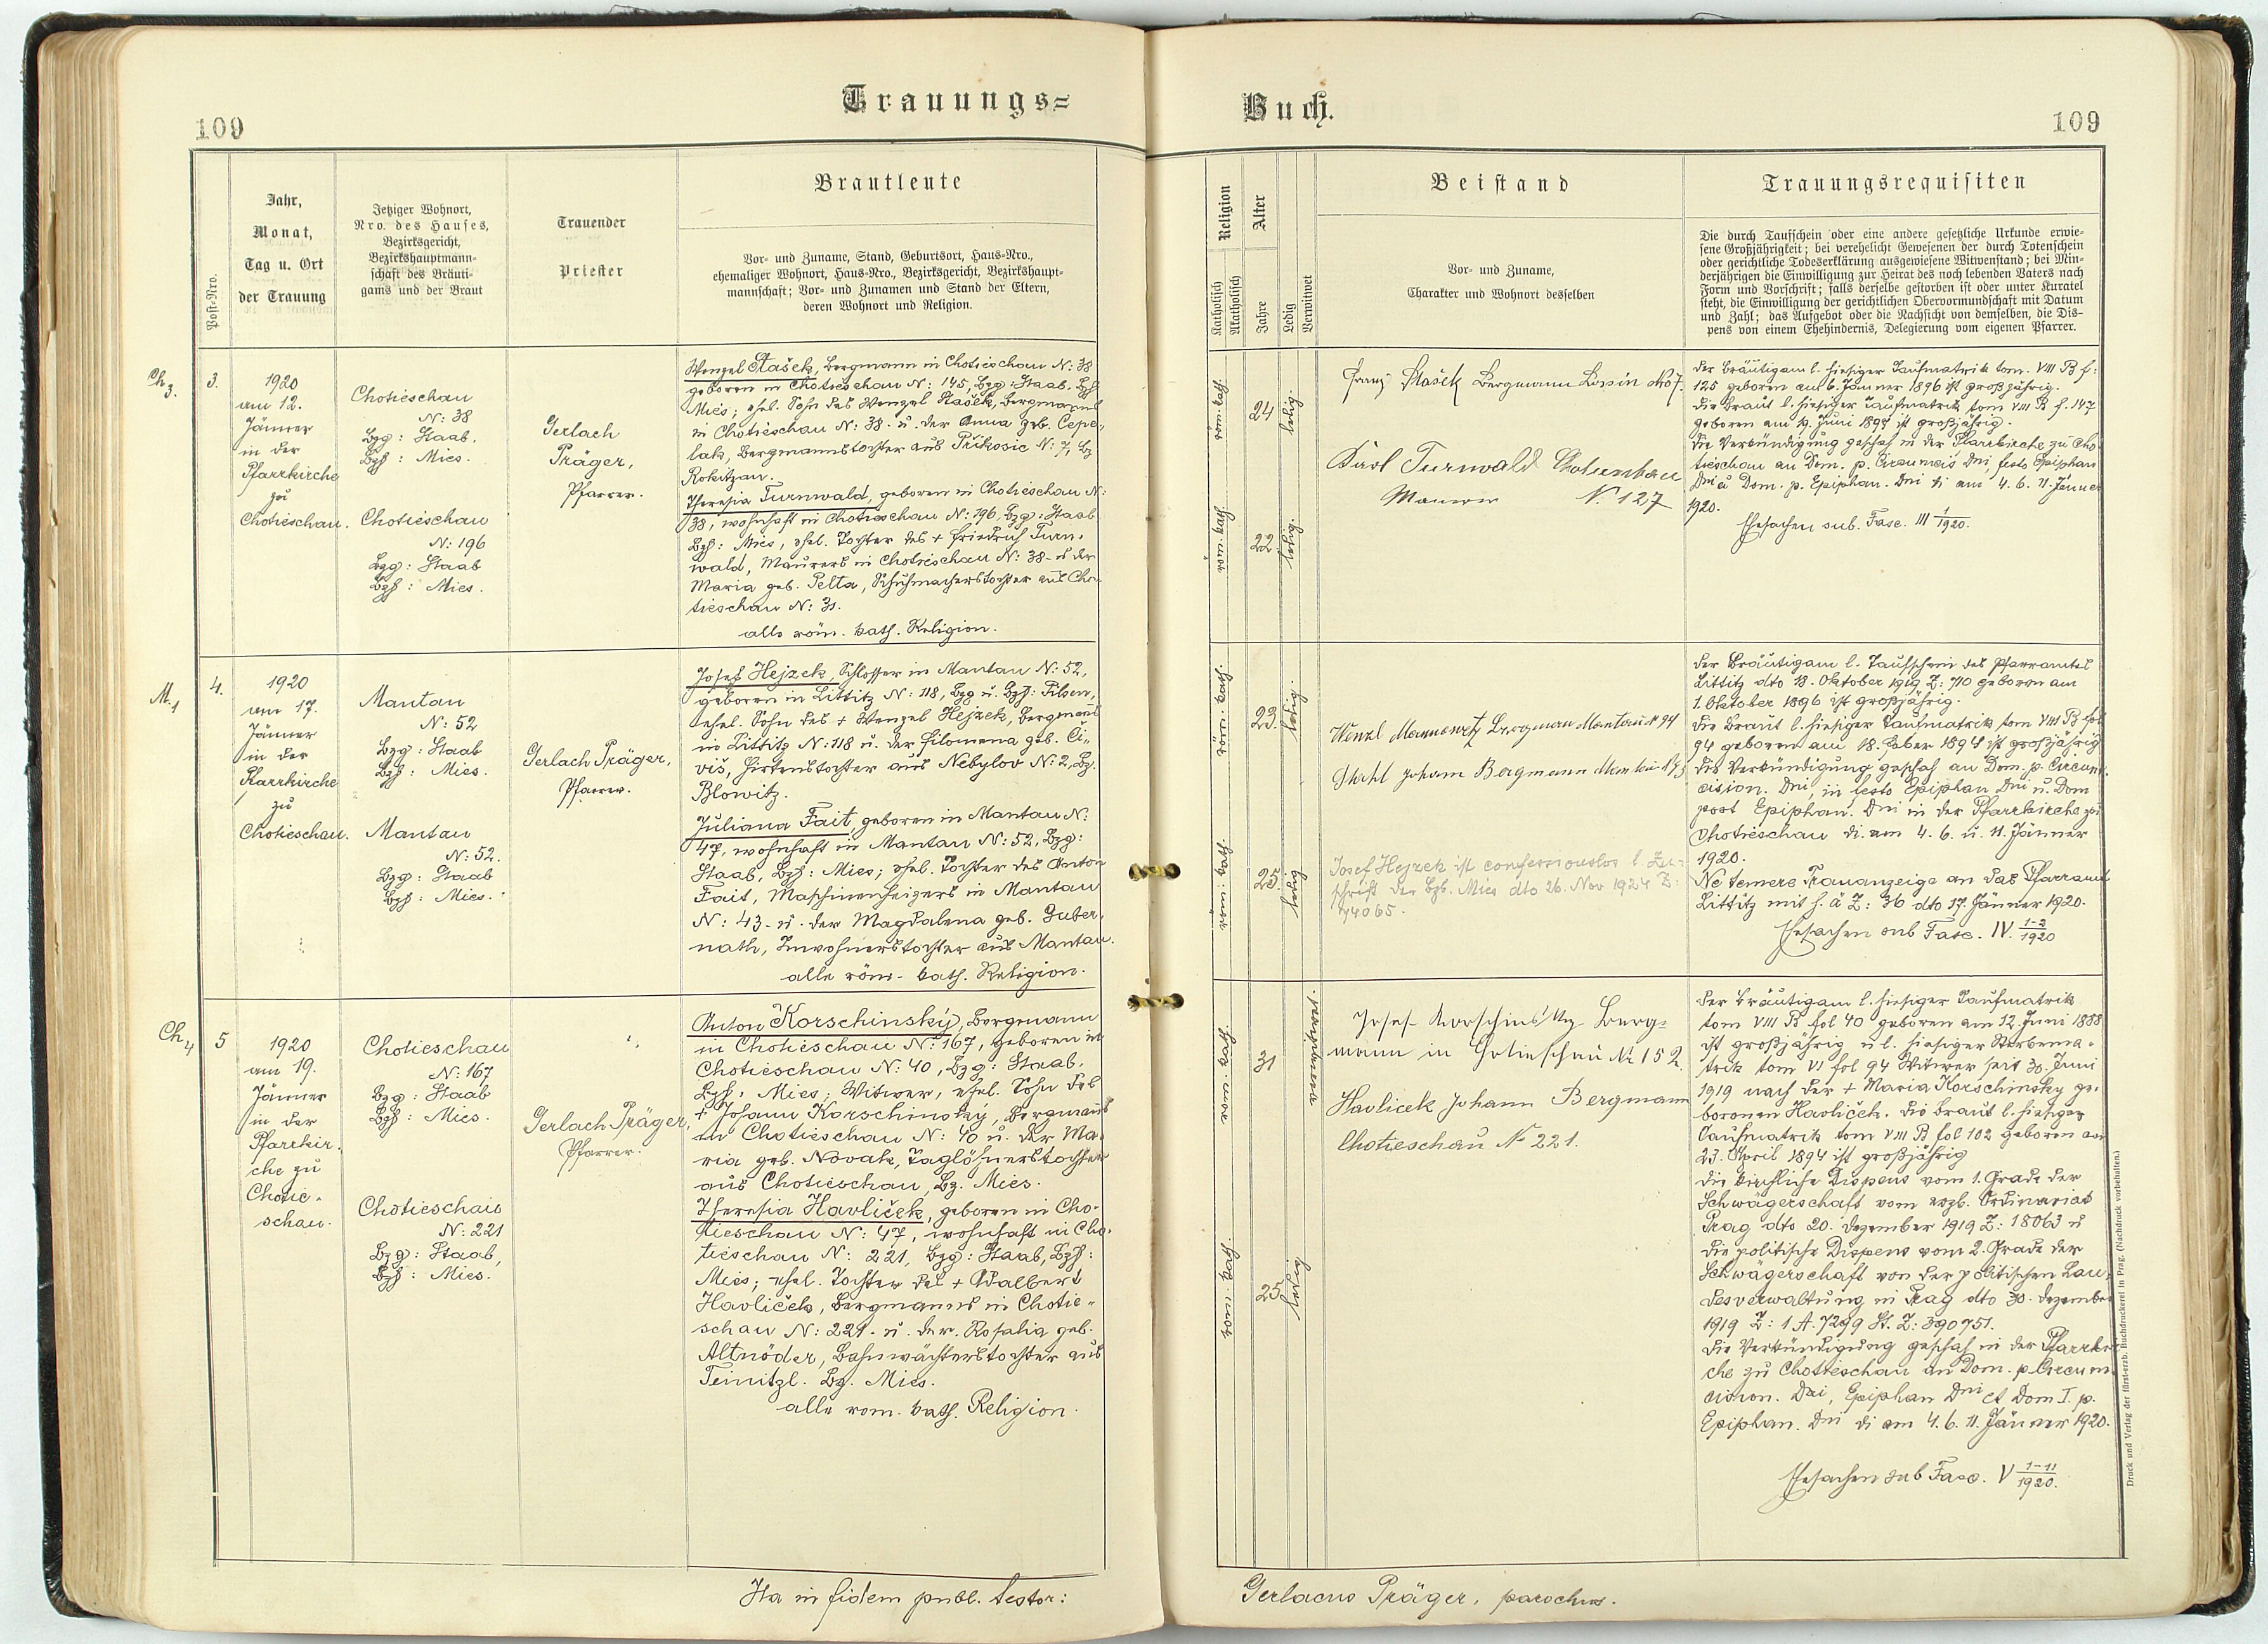 Trauungs=
109
Post=Nro.
Jahr,
Monat,
Tag u. Ort
der Trauung
Jetziger Wohnort,
Nro. des Hauses,
Bezirksgericht,
Bezirkshauptmann-
schaft des Bräuti-
gams und der Braut
Trauender
Priester
Brautleute
Vor= und Zuname, Stand, Geburtsort, Haus=Nro.,
ehemaliger Wohnort, Haus=Nro., Bezirksgericht, Bezirkshaupt-
mannschaft; Vor= und Zunamen und Stand der Eltern,
deren Wohnort und Religion.
Ch 3.
3.
1920
am 12.
Jänner
in der
Pfarrkirche
zu
Chotieschau.
Chotieschau
N: 38
Bzg: Staab.
Bzh: Mies.
Chotieschau
N: 196
Bzg: Staab
Bzh: Mies.
Gerlach
Präger,
Pfarrer.
Wenzel Stašek, Bergmann in Chotieschau N: 38
geboren in Chotieschau N: 145, Bzg: Staab, Bzh
Mies; ehel. Sohn des Wenzel Stašek, Bergmanns
in Chotieschau N: 38. u. der Anna geb. Cepe-
lak, Bergmannstochter aus Přikosic N: 7, Bz
Rokitzan.
Theresia Turnwald, geboren in Chotieschau N:
38, wohnhaft in Chotieschau N: 196, Bzg: Staab
Bzh: Mies, ehel. Tochter des + Friedrich Turn-
wald, Maurers in Chotieschau N: 38 u der
Maria geb. Pelta, Schuhmacherstochter aus Cho-
tieschau N: 31.
alle röm. kath. Religion.
M. 1
4.
1920
am 17.
Jänner
in der
Pfarrkirche
zu
Chotieschau.
Mantau
N: 52
Bzg: Staab
Bzh: Mies.
Mantau
N: 52.
Bzg: Staab
Bzh: Mies.
Gerlach Präger,
Pfarrer.
Josef Hejzek, Schlosser in Mantau N: 52,
geboren in Littitz N: 118, Bzg u. Bzh: Pilsen,
ehel. Sohn des + Wenzel Hejzek, Bergmanns
in Littitz N: 118 u. der Filomena geb. Ci-
viš, Hirtenstochter aus Nebylov N: 2, Bz.
Blowitz.
Juliana Fait, geboren in Mantau N:
47, wohnhaft in Mantau N: 52, Bzg:
Staab, Bzh: Mies; ehel. Tochter des Anton
Fait, Maschinenheizers in Mantau
N: 43. u. der Magdalena geb. Guber-
nath, Inwohnerstochter aus Mantau.
alle röm. kath. Religion.
Ch 4
5
1920
am 19.
Jänner
in der
Pfarrkir-
che zu
Chotie-
schau.
Chotieschau
N: 167
Bzg: Staab
Bzh: Mies.
Chotieschau
N: 221
Bzg: Staab,
Bzh: Mies.
Gerlach Präger,
Pfarrer.
Anton Korschinský, Bergmann
in Chotieschau N: 167, geboren in
Chotieschau N: 40, Bzg: Staab,
Bzh: Mies; Witwer, ehel. Sohn des
+ Johann Korschinsky, Bergmanns
in Chotieschau N: 40 u. der Ma-
ria geb. Novak, Taglöhnerstochter
aus Chotieschau, Bz. Mies.
Theresia Havliček, geboren in Cho-
tieschau N: 47, wohnhaft in Cho-
tieschau N: 221, Bzg: Staab, Bzh:
Mies; ehel. Tochter des + Adalbert
Havliček, Bergmanns in Chotie-
schau N: 221. u. der Rosalia geb.
Altnöder, Bahnwächterstochter aus
Teinitzl. Bz. Mies.
alle rom. kath. Religion.
Ita in fidem publ. testor:
Buch.
109
Religion
Katholisch
Akatholisch
Alter
Jahre
Ledig
Verwitwet
Beistand
Vor= und Zuname,
Charakter und Wohnort desselben
Trauungsrequisiten
Die durch Taufschein oder eine andere gesetzliche Urkunde erwie-
sene Großjährigkeit; bei verehelicht Gewesenen der durch Totenschein
oder gerichtliche Todeserklärung ausgewiesene Witwenstand; bei Min-
derjährigen die Einwilligung zur Heirat des noch lebenden Vaters nach
Form und Vorschrift; falls derselbe gestorben ist oder unter Kuratel
steht, die Einwilligung der gerichtlichen Obervormundschaft mit Datum
und Zahl; das Aufgebot oder die Nachsicht von demselben, die Dis-
pens von einem Ehehindernis, Delegierung vom eigenen Pfarrer.
röm. kath.
24
ledig.
röm. kath.
22.
ledig.
Franz Stašek Bergmann
Karl Turnwald
Maurer N. 127
Der Bräutigam l. hiesiger Taufmatrik tom. VIII B f:
125 geboren am 6. Jänner 1896 ist großjährig.
Die Braut l. hiesiger Taufmatrik tom VIII B f. 147
geboren am 9. Juni 1897 ist großjährig.
Die Verkündigung geschah in der Pfarrkirche zu Cho-
tieschau an Dom. p. Circumcis Dni, festo Epiphan
Dni u Dom. p. Epiphan. Dni di am 4. 6. 11. Jänner
1920.
Ehesachen sub. Fasc. III 1/1920.
röm. kath.
23.
ledig.
röm. kath.
25.
ledig
Wenzl Bergman Mantau N 94
Johann Bergmann
Josef Hejzek ist confessionslos l. Zu-
schrift der Bzh. Mies dto 26. Nov 1924 Z:
74065.
Der Bräutigam l. Taufschein des Pfarramtes
Littitz dto 18. Oktober 1919 Z: 710 geboren am
1. Oktober 1896 ist großjährig.
Die Braut l. hiesiger Taufmatrik tom VIII B fol
94 geboren am 18. Feber 1894 ist großjährig
Die Verkündigung geschah an Dom. p. Circum-
cision. Dni, in festo Epiphan Dni u. Dom
post Epiphan. Dni in der Pfarrkirche zu
Chotieschau di. am 4. 6. u. 11. Jänner
1920.
Ne temere Trauanzeige an das Pfarramt
Littitz mit h. ä Z: 36 dto 17. Jänner 1920.
Ehesachen sub Fasc. IV. 1-2/1920
röm. kath
31
verwitwet.
röm. kath.
25.
ledig
Josef Korschinsky Berg=
mann in Chotieschau Nr 152.
Havlicek Johann Bergmann
Chotieschau No 221.
Der Bräutigam l. hiesiger Taufmatrik
tom VIII B fol 40 geboren am 12. Juni 1888
ist großjährig u l. hiesiger Sterbema-
trik tom VI fol 94 Witwer seit 30. Juni
1919 nach der + Maria Korschinsky ge-
borenen Havliček. Die Braut l. hiesiger
Taufmatrik tom VIII B fol 102 geboren am
23. April 1894 ist großjährig
Die kirchliche Dispens vom 1. Grade der
Schwägerschaft vom erzb. Ordinariat
Prag dto 20. Dezember 1919 Z: 18063 u
die politische Dispens vom 2. Grade der
Schwägerschaft von der politischen Lan-
desverwaltung in Prag dto 30. Dezember
1919 Z: 1 A. 7299 St. Z: 390751.
Die Verkündigung geschah in der Pfarrkir-
che zu Chotieschau an Dom. p. Circum
cision. Dni, Epiphan Dni et Dom I. p.
Epiphan. Dni di am 4. 6. 11. Jänner 1920.
Ehesachen sub Fasc. V 1-11/1920.
Druck und Verlag der fürst-erzb. Buchdruckerei in Prag. (Nachdruck vorbehalten.)
Gerlacus Präger, parochus.